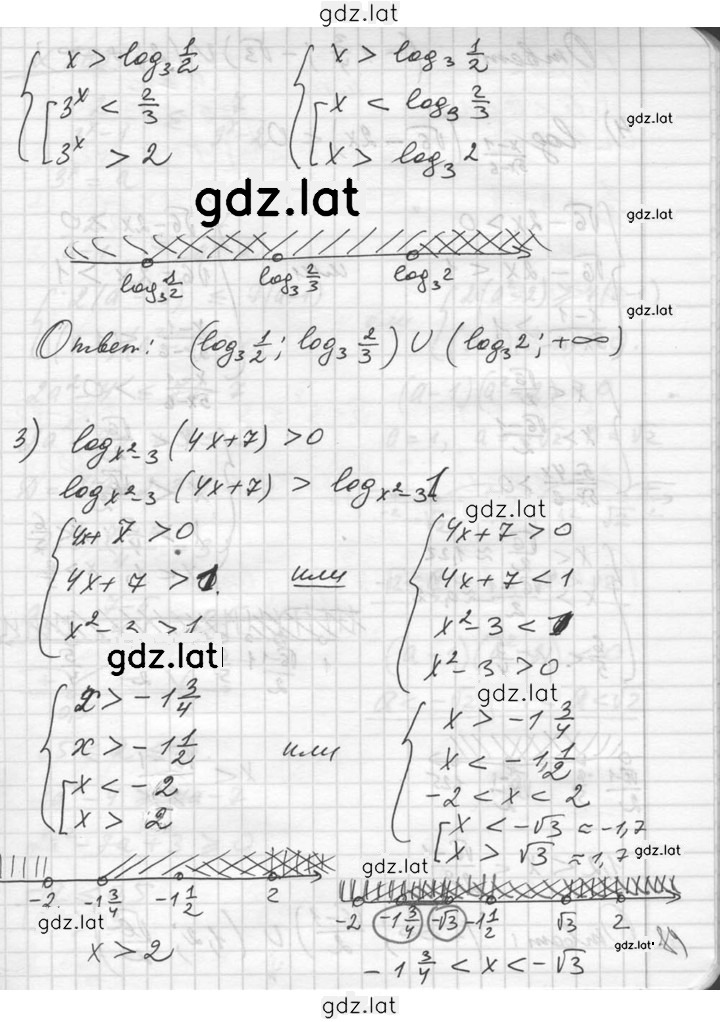 gdz.lat
{ x > log₃ 1/2    { x > log₃ 1/2
[ 3ˣ < 2/3    [ x < log₃ 2/3
gdz.lat
3ˣ > 2    x > log₃ 2
gdz.lat
gdz.lat
log₃ 1/2    log₃ 2/3    log₃ 2
gdz.lat
Ответ: (log₃ 1/2; log₃ 2/3) ∪ (log₃ 2; +∞)
3) log_{x²-3} (4x+7) > 0
log_{x²-3} (4x+7) > log_{x²-3} 1
gdz.lat
{ 4x+7 > 0    { 4x+7 > 0
4x+7 > 1    или    4x+7 < 1
x²-3 > 1    x²-3 < 1
gdz.lat    x²-3 > 0
gdz.lat
{ x > -1 3/4    { x > -1 3/4
x > -1 1/2    или    x < -1 1/2
[ x < -2    -2 < x < 2
x > 2    [ x < -√3 ≈ -1,7
x > √3 ≈ 1,7
gdz.lat
gdz.lat
-2    -1 3/4    -1 1/2    2    -2    -1 3/4    -√3    -1 1/2    √3    2
gdz.lat
gdz.lat
x > 2    -1 3/4 < x < -√3
gdz.lat